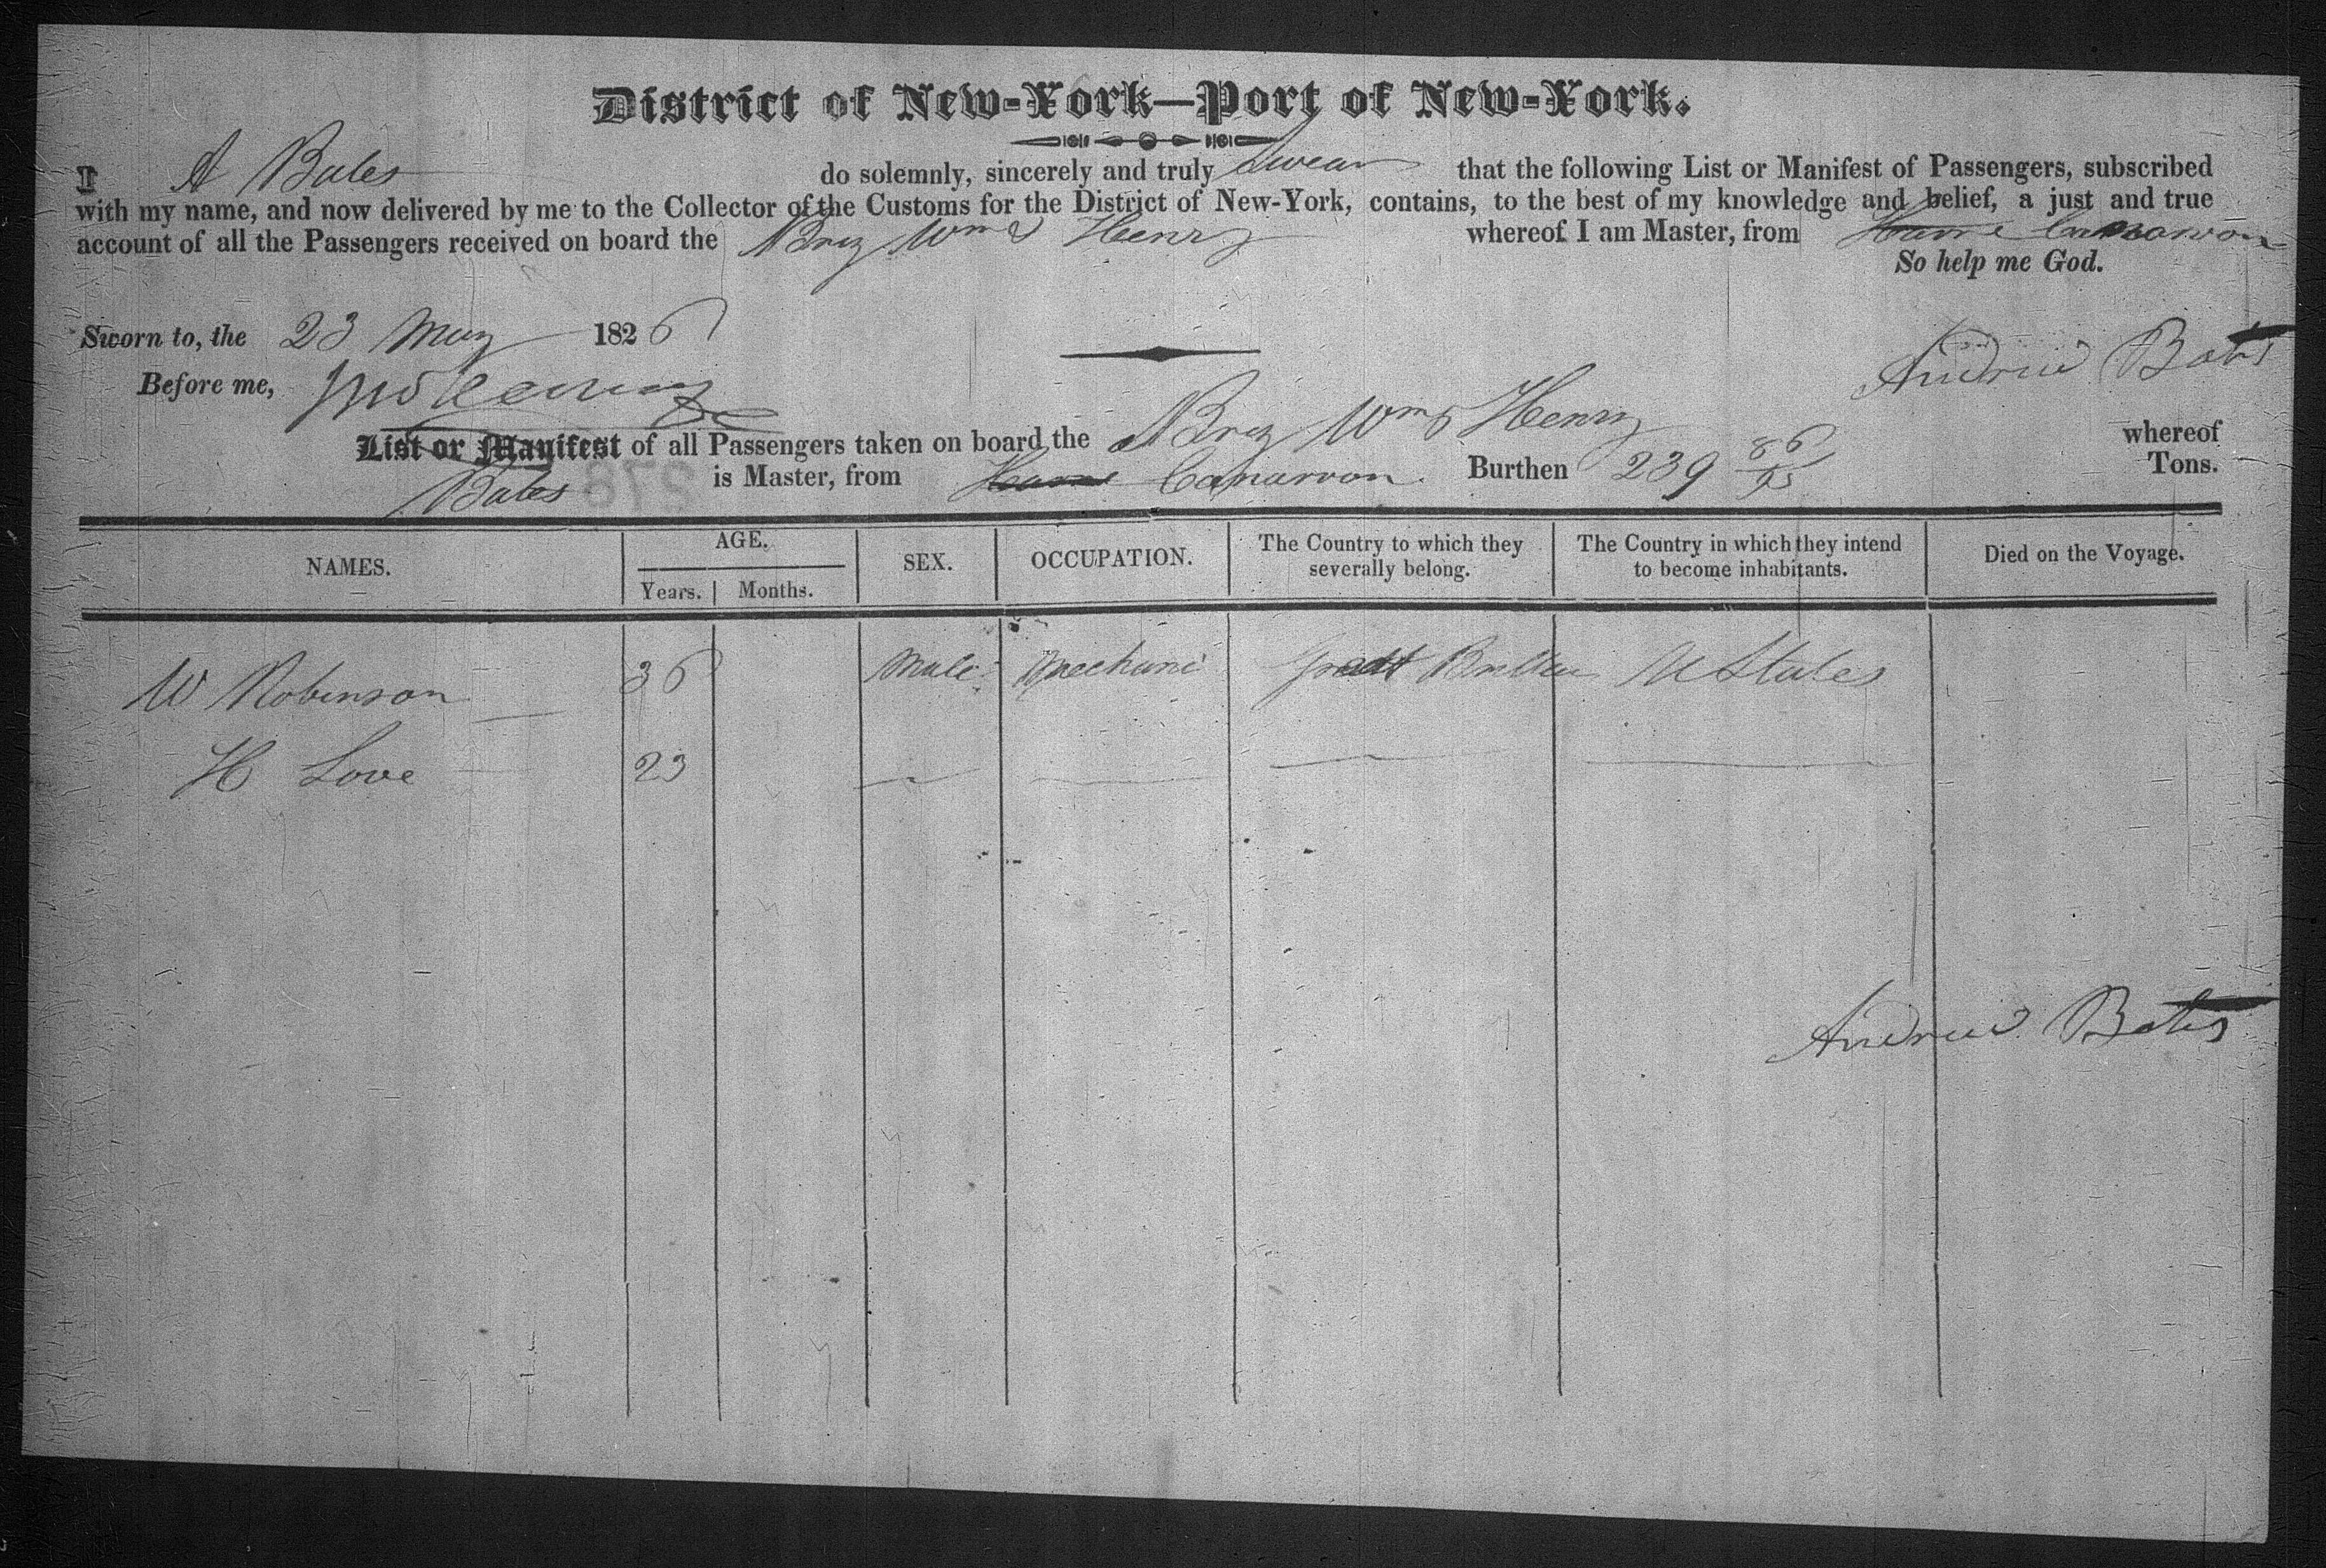 District of New-York—Port of New-York.
I A Bates do solemnly, sincerely and truly swear that the following List or Manifest of Passengers, subscribed
with my name, and now delivered by me to the Collector of the Customs for the District of New-York, contains, to the best of my knowledge and belief, a just and true
account of all the Passengers received on board the Brig Wm & Henry whereof I am Master, from Havre Canarvon
So help me God.
Sworn to, the 23 May 1826
Andrew Bates
Before me,
List or Manifest of all Passengers taken on board the Brig Wm & Henry whereof
Bates is Master, from Havre Canarvon Burthen 239 86/95 Tons.
NAMES. AGE. SEX. OCCUPATION. The Country to which they severally belong. The Country in which they intend to become inhabitants. Died on the Voyage.
Years. Months.
W Robinson 36 Male Mechanic Great Brittan U States
H Love 23
Andrew Bates